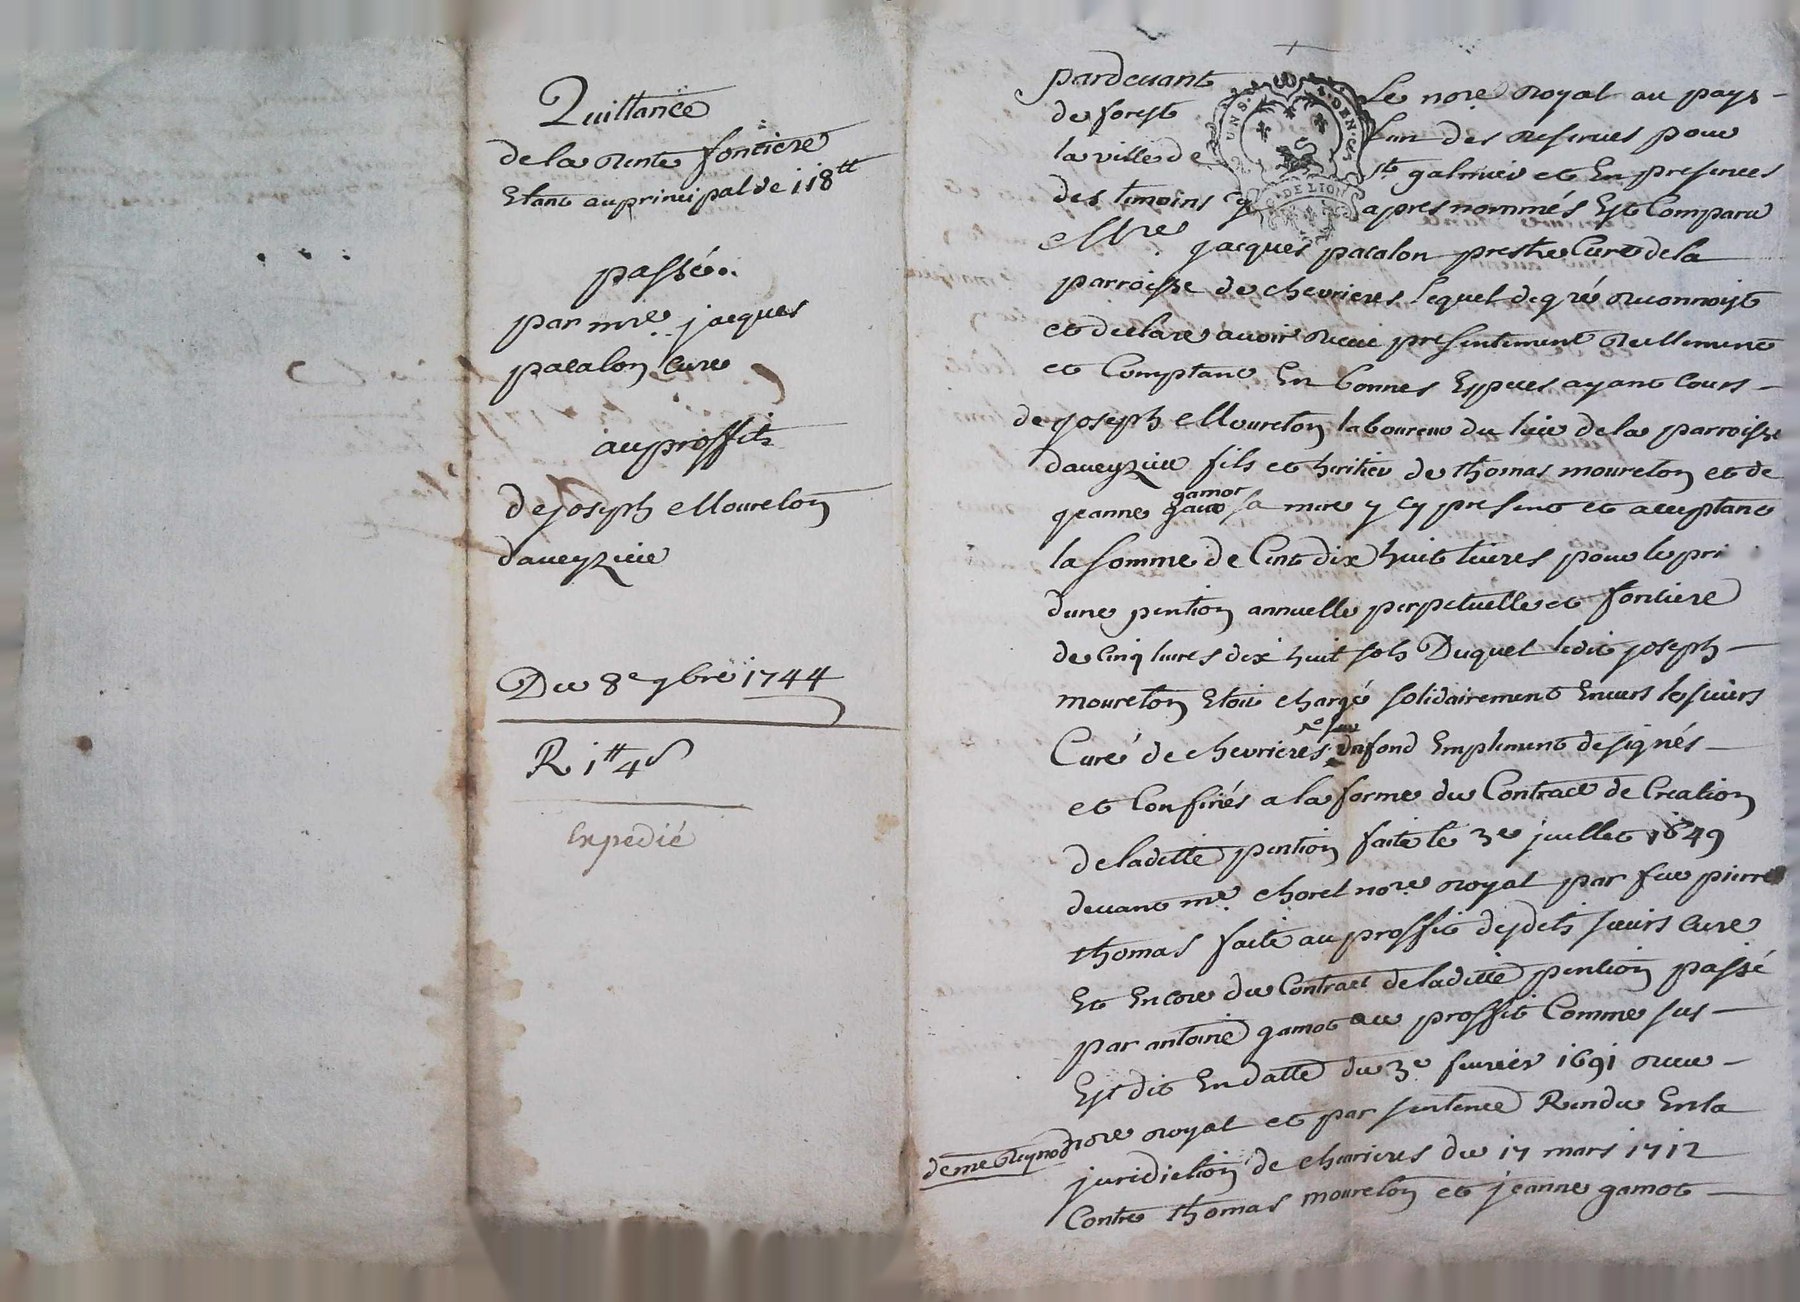 Quittance
de la rente fonciere
Etant au principal de 118tt
passée
par mre jacques
pacalon curé
au proffit
de joseph Mourelon
daveyzieu
Du 8e 9bre 1744
R 1tt 4s
Expedié
pardevant Le nore royal au pays
de forest Lun des reservés pour
la ville de st galmier et En presences
des temoins cy apres nommés Est Comparu
Mre jacques pacalon prestre Curé de la
parroisse de chevrieres lequel de gré reconnoist
et declare avoir receu presentement reellement
et Comptant En bonnes Especes ayant cours
de joseph Mourelon laboureur du lieu de la parroisse
daveyzieu fils et heritier de thomas mourelon et de
jeanne gamot sa mere y cy present et acceptant
la somme de Cent dix huit livres pour le pri
dune pention annuelle perpetuelle et fonciere
de Cinq livres dix huit sols Duquel ledit joseph
mourelon Etoit chargé solidairement Envers les sieurs
Curé de chevrieres fond Emplement designés
et Confinés a la forme du Contract de Creation
de laditte pention faite le 3e juillet 1649
devant me chorel nore royal par feu pierre
thomas faite au proffit desdits sieurs curé
Et Encore du Contract de laditte pention passé
par antoine gamot au proffit Comme sus
Est dit En datte du 3e fevrier 1691 receu
de me Reynod nore royal et par sentence Rendue En la
juridiction de chevrieres du 17 mars 1712
Contre thomas mourelon et jeanne gamot
DE LION